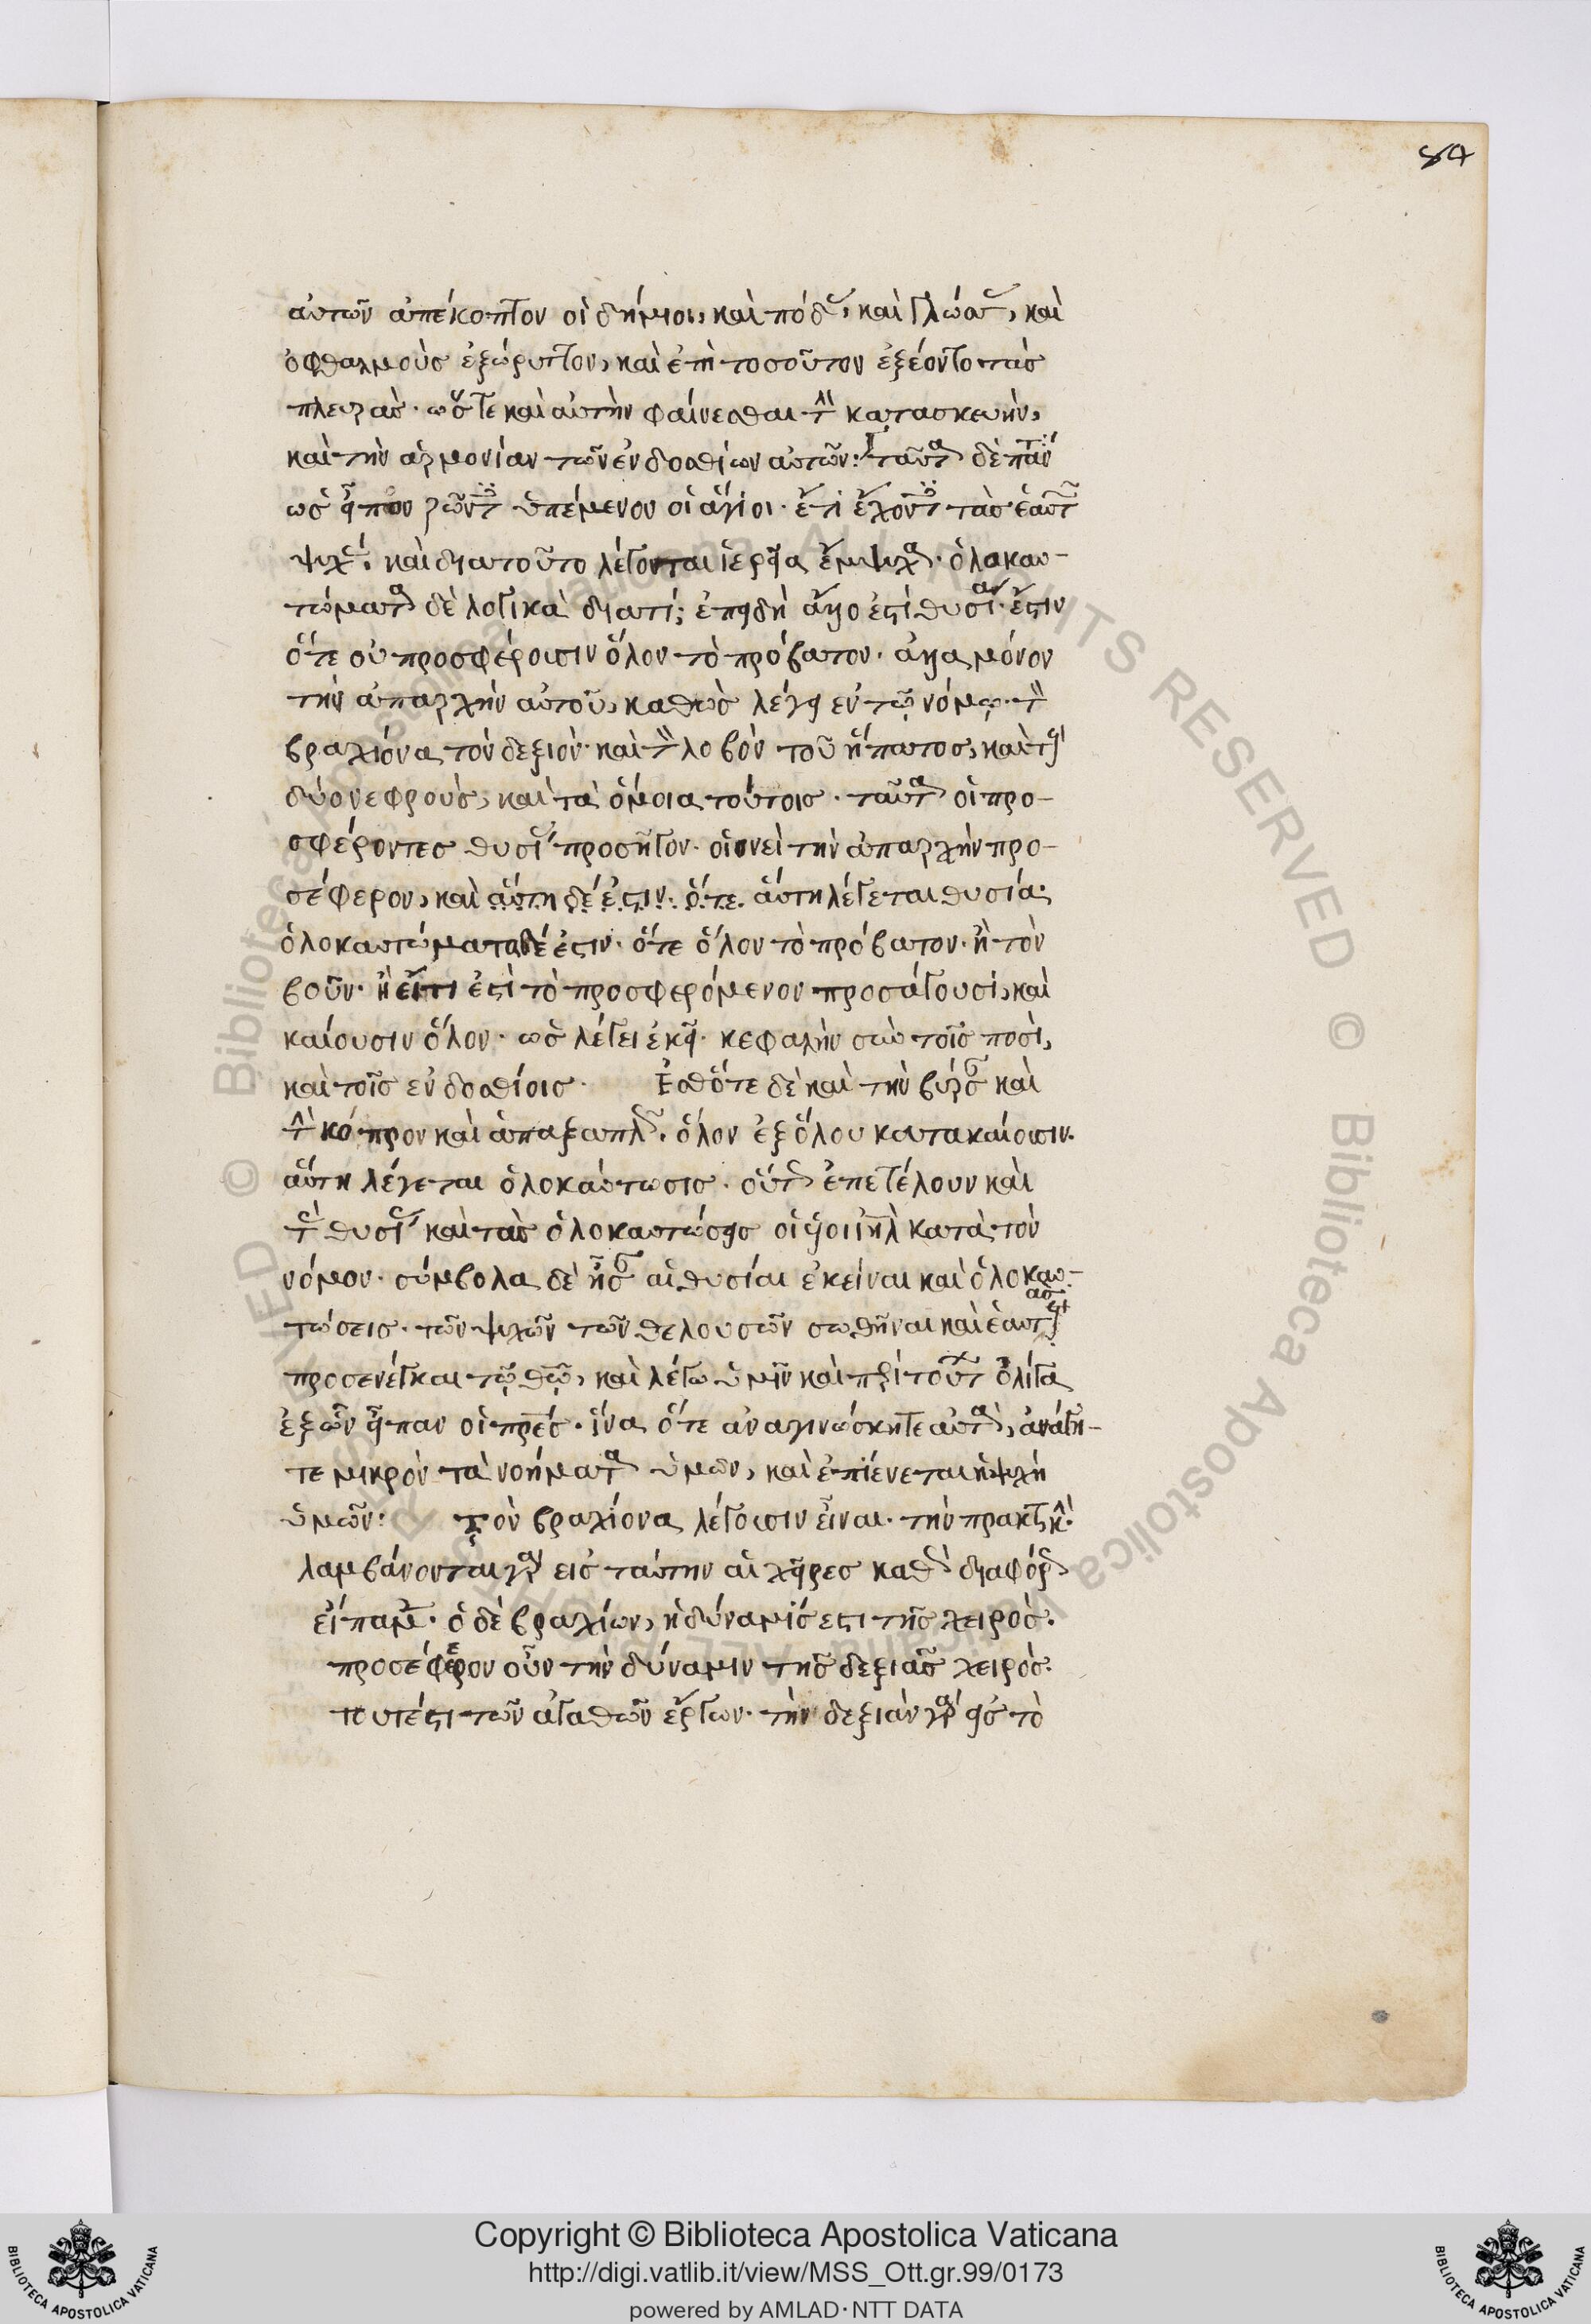 84
αὐτῶν ἀπέκοπτον οἱ δήμιοι, καὶ πόδας, καὶ γλώσσας, καὶ
ὀφθαλμοὺς ἐξώρυττον, καὶ ἐπὶ τοσοῦτον ἐξέοντο τὰς
πλευρὰς· ὥστε καὶ αὐτὴν φαίνεσθαι τὴν κατασκευὴν,
καὶ τὴν ἁρμονίαν τῶν ἐνδοσθίων αὐτῶν: ταῦτα δὲ πάντα
ὡς εἶπον ζῶντες ὑπέμενον οἱ ἅγιοι· ἔτι ἔχοντες τὰς ἑαυτῶν
ψυχάς· καὶ διατοῦτο λέγονται ἱερεῖα ἔμψυχα· ὁλοκαυ-
τώματα δὲ λογικὰ διατί; ἐπειδὴ ἄλλο ἐστὶ θυσία· ἔστιν
ὅτε οὐ προσφέρουσιν ὅλον τὸ πρόβατον· ἀλλα μόνον
τὴν ἀπαρχὴν αὐτοῦ, καθὼς λέγει ἐν τῷ νόμῳ· τὸν
βραχιόνα τὸν δεξιὸν· καὶ τὸν λοβὸν τοῦ ἥπατος, καὶ τοὺς
δύο νεφροὺς, καὶ τὰ ὅμοια τούτοις· ταῦτα οἱ προ-
σφέροντες θυσίας προσῆγον· οἱονεὶ τὴν ἀπαρχὴν προ-
σέφερον, καὶ αὕτη δέ ἐστιν· ὅτε αὕτη λέγεται θυσία·
ὁλοκαυτώματα δέ ἐστιν· ὅτε ὅλον τὸ πρόβατον· ἢ τὸν
βοῦν· ἢ εἴτι ἐστὶ τὸ προσφερόμενον προσάγουσι, καὶ
καίουσιν ὅλον· ὡς λέγει ἐκεῖ· κεφαλὴν σὺν τοῖς ποσὶ,
καὶ τοῖς ἐνδοσθίοις· Ἐσθότε δὲ καὶ τὴν βύρσαν καὶ
τὴν κόπρον καὶ ἁπαξαπλῶς· ὅλον ἐξ ὅλου κατακαίουσιν·
αὕτη λέγεται ὁλοκαύτωσις· οὕτως ἐπετέλουν καὶ
τὰς θυσίας καὶ τὰς ὁλοκαυτώσεις οἱ υἱοὶ ιηλ κατὰ τὸν
νόμον· σύμβολα δὲ ἦσαν αἱ θυσίαι ἐκείναι καὶ ὁλοκαυ-
τώσεις· τῶν ψυχῶν τῶν θελουσῶν σωθῆναι καὶ ἑαυτοὺς ας
προσενέγκαι τῷ θῷ, καὶ λέγω ὑμῖν καὶ περὶ τούτου ὀλίγα
ἐξ ὧν εἶπαν οἱ πρες· ἵνα ὅτε ἀναγινώσκητε αὐτὰ, ἀνάγη-
τε μικρὸν τὰ νοήματα ὑμῶν, καὶ ἐπιένεται ἡ ψυχὴ
ὑμῶν: τὸν βραχίονα λέγουσιν εἶναι· τὴν πρακτικὴν·
λαμβάνονται γὰρ εἰς ταύτην αἱ χεῖρες καθὼς διαφόρως
εἴπαμεν· ὁ δὲ βραχίων, ἡ δύναμίς ἐστι τῆς χειρὸς·
προσέφερον οὖν τὴν δύναμιν τῆς δεξιᾶς χειρός·
τουτέστι τῶν ἀγαθῶν ἔργων· τὴν δεξιὰν γὰρ εἰς τὸ
Copyright © Biblioteca Apostolica Vaticana
http://digi.vatlib.it/view/MSS_Ott.gr.99/0173
powered by AMLAD·NTT DATA
BIBLIOTECA APOSTOLICA VATICANA
BIBLIOTECA APOSTOLICA VATICANA